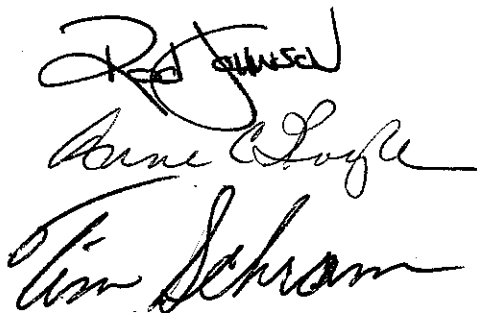 Rod Johnson
Anne C Boyle
Tim Schram